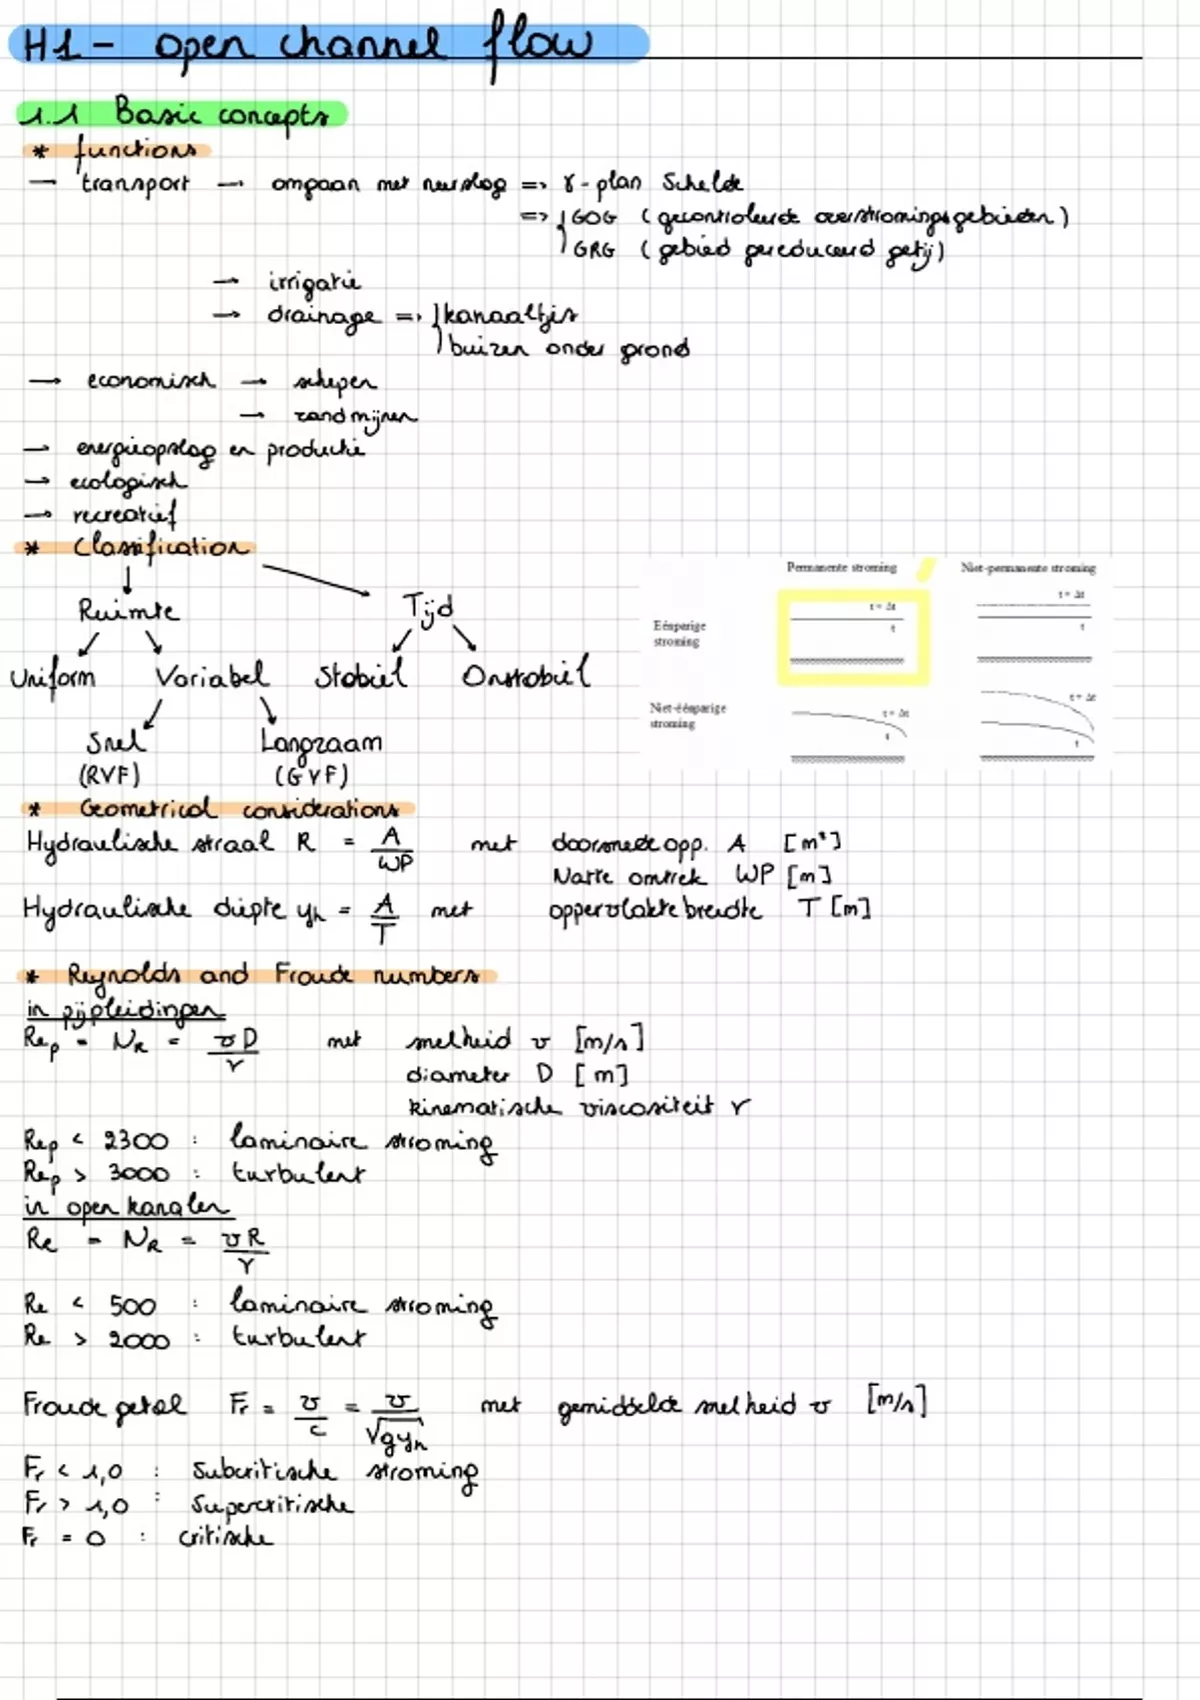 H1 - open channel flow
1.1 Basic concepts
* functions
→ transport → omgaan met neerslag => γ-plan Schelde
=> { GOG (gecontroleerde overstromingsgebieden)
GRG (gebied gereduceerd getij)
→ irrigatie
→ drainage => { kanaaltjes
buizen onder grond
→ economisch → schepen
→ zandmijnen
→ energieopslag en productie
→ ecologisch
→ recreatief
* Classification
Ruimte Tijd
Uniform Variabel Stabiel Onstabiel
Snel Langzaam
(RVF) (GVF)
Permanente stroming Niet-permanente stroming
Eénparige stroming
t = Δt t = Δt
t t
Niet-éénparige stroming
t = Δt t = Δt
t t
* Geometrical considerations
Hydraulische straal R = A/WP met doorsnede opp. A [m²]
Natte omtrek WP [m]
Hydraulische diepte yh = A/T met oppervlakte breedte T [m]
* Reynolds and Froude numbers
in pijpleidingen
Rep = NR = vD/γ met snelheid v [m/s]
diameter D [m]
kinematische viscositeit γ
Rep < 2300 : laminaire stroming
Rep > 3000 : turbulent
in open kanalen
Re = NR = vR/γ
Re < 500 : laminaire stroming
Re > 2000 : turbulent
Froude getal Fr = v/c = v/√gyh met gemiddelde snelheid v [m/s]
Fr < 1,0 : Subcritische stroming
Fr > 1,0 : Supercritische
Fr = 0 : critische